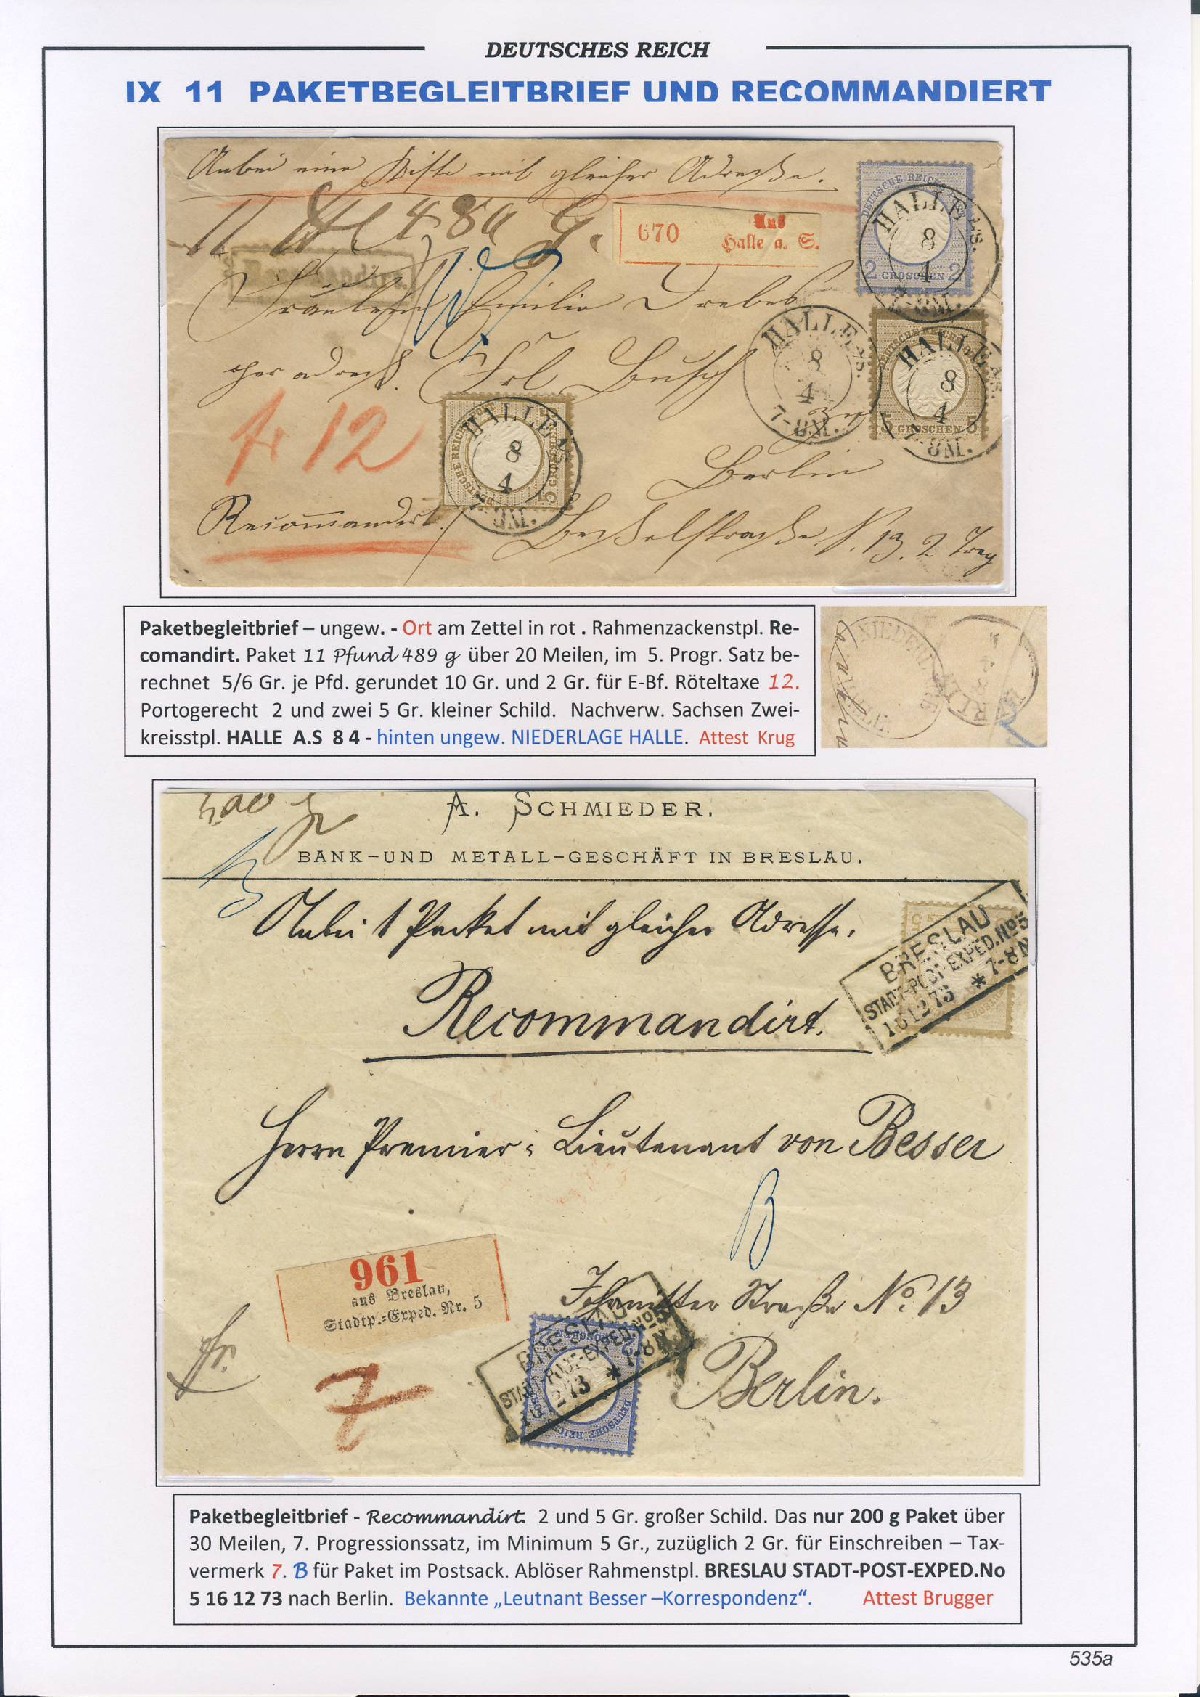 DEUTSCHES REICH
IX 11 PAKETBEGLEITBRIEF UND RECOMMANDIERT
Anbei eine Kiste mit gleicher Adresse.
11 480 g.
670
Aus
Halle a. S.
DEUTSCHE REICH
2 GROSCHEN 2
HALLE A/S.
8
4
7-8M.
Fräulein Emilie Drebes
per adresse. Frl Busch
HALLE A/S.
8
4
7-8M.
HALLE A/S.
8
4
7-8M.
5 GROSCHEN 5
fr 12
HALLE A/S.
8
4
8M.
in
Berlin
Recommandirt.
N. 13. 2. Trep
Paketbegleitbrief – ungew. - Ort am Zettel in rot . Rahmenzackenstpl. Re-
comandirt. Paket 11 Pfund 489 g über 20 Meilen, im 5. Progr. Satz be-
rechnet 5/6 Gr. je Pfd. gerundet 10 Gr. und 2 Gr. für E-Bf. Röteltaxe 12.
Portogerecht 2 und zwei 5 Gr. kleiner Schild. Nachverw. Sachsen Zwei-
kreisstpl. HALLE A.S 8 4 - hinten ungew. NIEDERLAGE HALLE. Attest Krug
200 g
A. SCHMIEDER.
BANK-UND METALL-GESCHÄFT IN BRESLAU.
Anbei 1 Packet mit gleicher Adresse.
BRESLAU
STADT-POST-EXPED.No5
16 12 73 * 7-8N
Recommandirt.
Herrn Premier-Lieutenant von Besser
B
961
aus Breslau,
Stadtp.-Exped. Nr. 5
Straße No. 13
BRESLAU
STADT-POST-EXPED.No5
16 12 73 * 7-8N
DEUTSCHE REICH
fr.
7
Berlin.
Paketbegleitbrief - Recommandirt. 2 und 5 Gr. großer Schild. Das nur 200 g Paket über
30 Meilen, 7. Progressionssatz, im Minimum 5 Gr., zuzüglich 2 Gr. für Einschreiben – Tax-
vermerk 7. B für Paket im Postsack. Ablöser Rahmenstpl. BRESLAU STADT-POST-EXPED.No
5 16 12 73 nach Berlin. Bekannte „Leutnant Besser –Korrespondenz“. Attest Brugger
535a